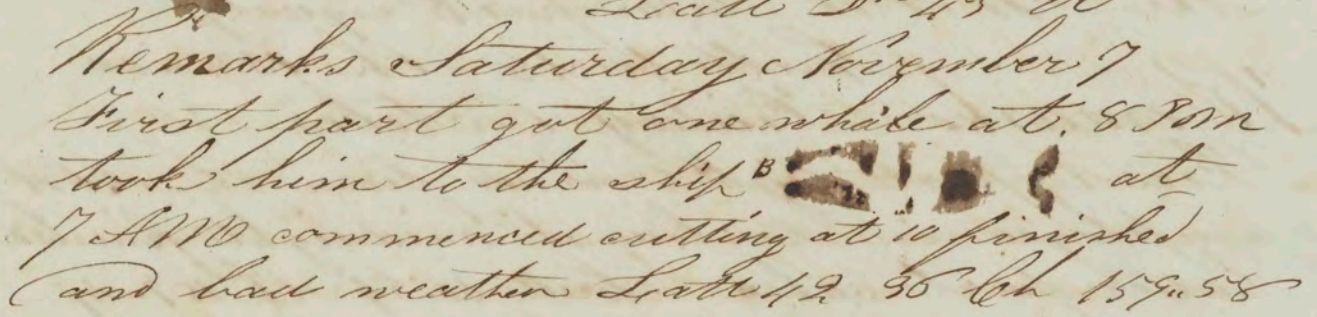 Latt Do 43
Remarks Saturday November 7
First part got one whale at. 8 Pom
took him to the ship B at
7 AM commenced cutting at 10 finished
and bad weather Latt 42 36 Ch 159" 58